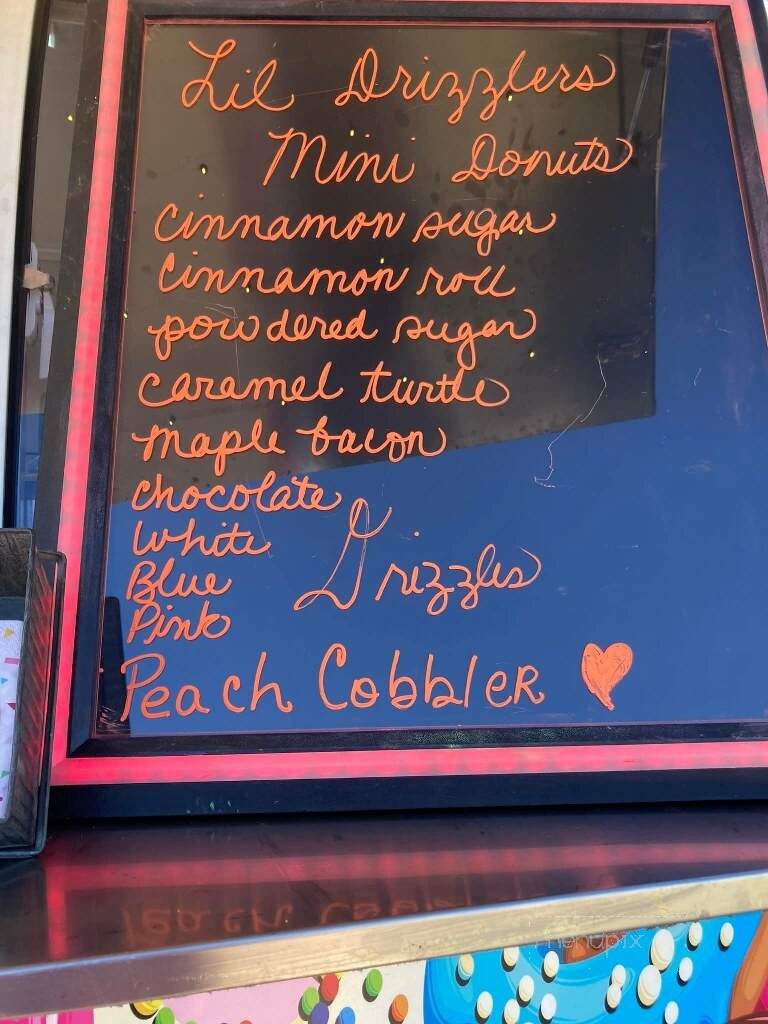 Lil Drizzlers
Mini Donuts
Cinnamon sugar
Cinnamon roll
powdered sugar
Caramel turtle
maple bacon
Chocolate
White
Blue
Pink
Drizzles
Peach Cobbler
menupix